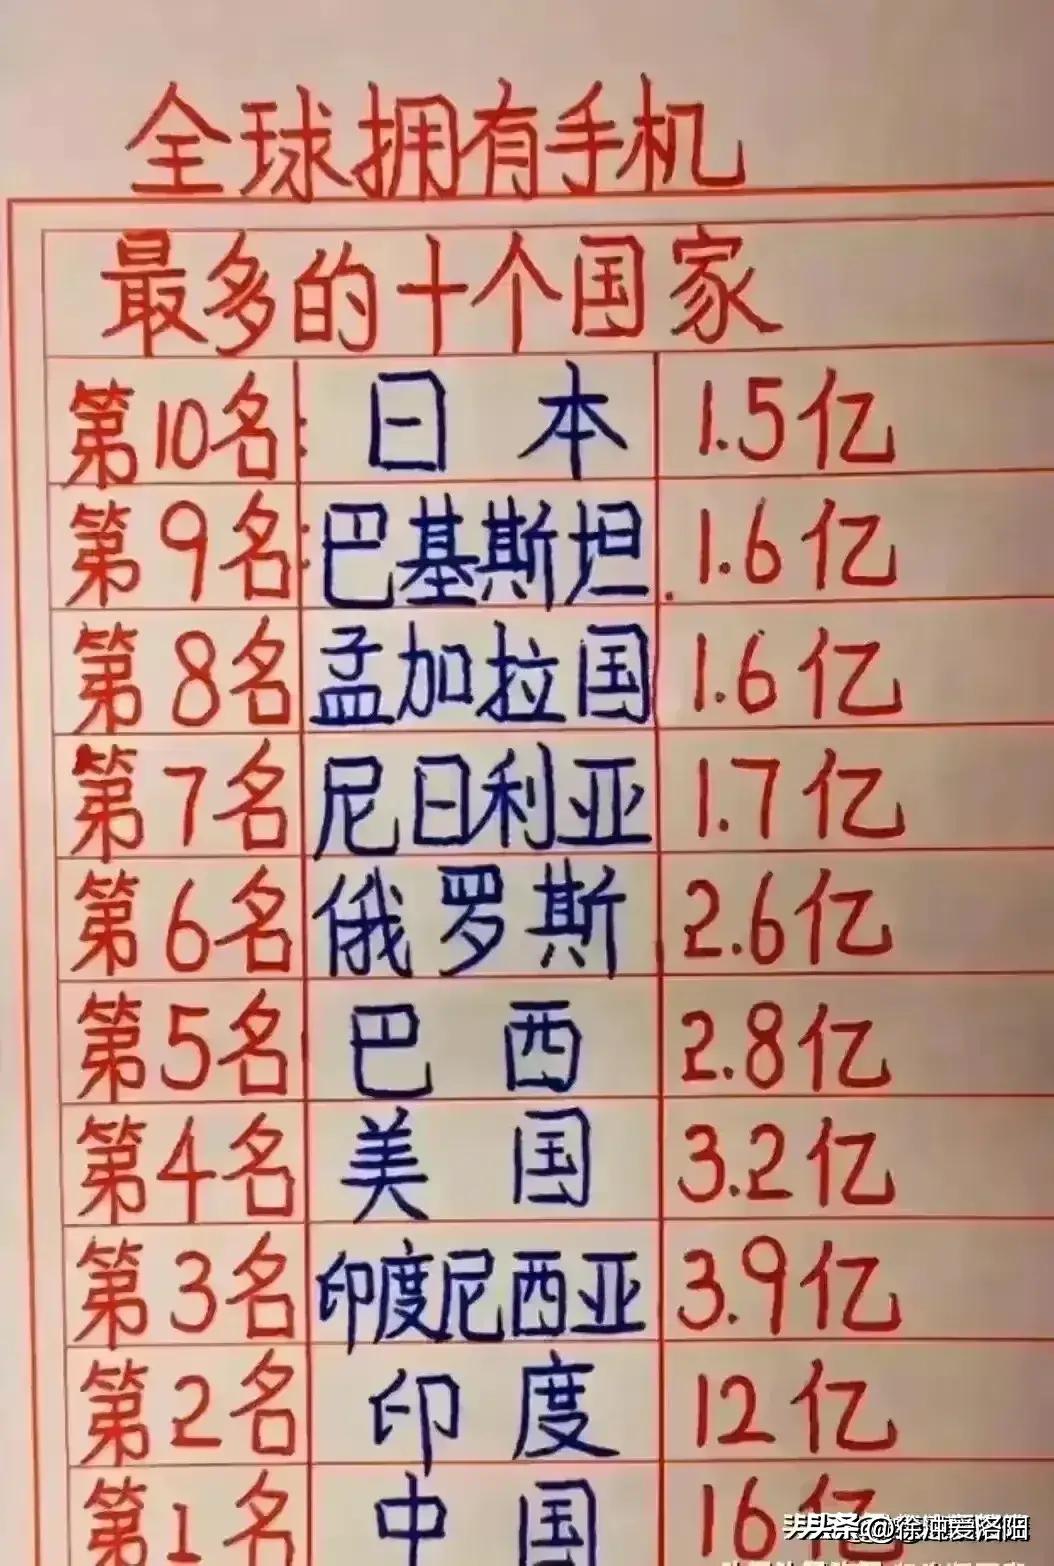 全球拥有手机
最多的十个国家
第10名: 日本 1.5亿
第9名: 巴基斯坦 1.6亿
第8名 孟加拉国 1.6亿
第7名 尼日利亚 1.7亿
第6名 俄罗斯 2.6亿
第5名 巴西 2.8亿
第4名 美国 3.2亿
第3名 印度尼西亚 3.9亿
第2名 印度 12亿
第1名 中国 16亿
头条 @徐旭爱洛阳